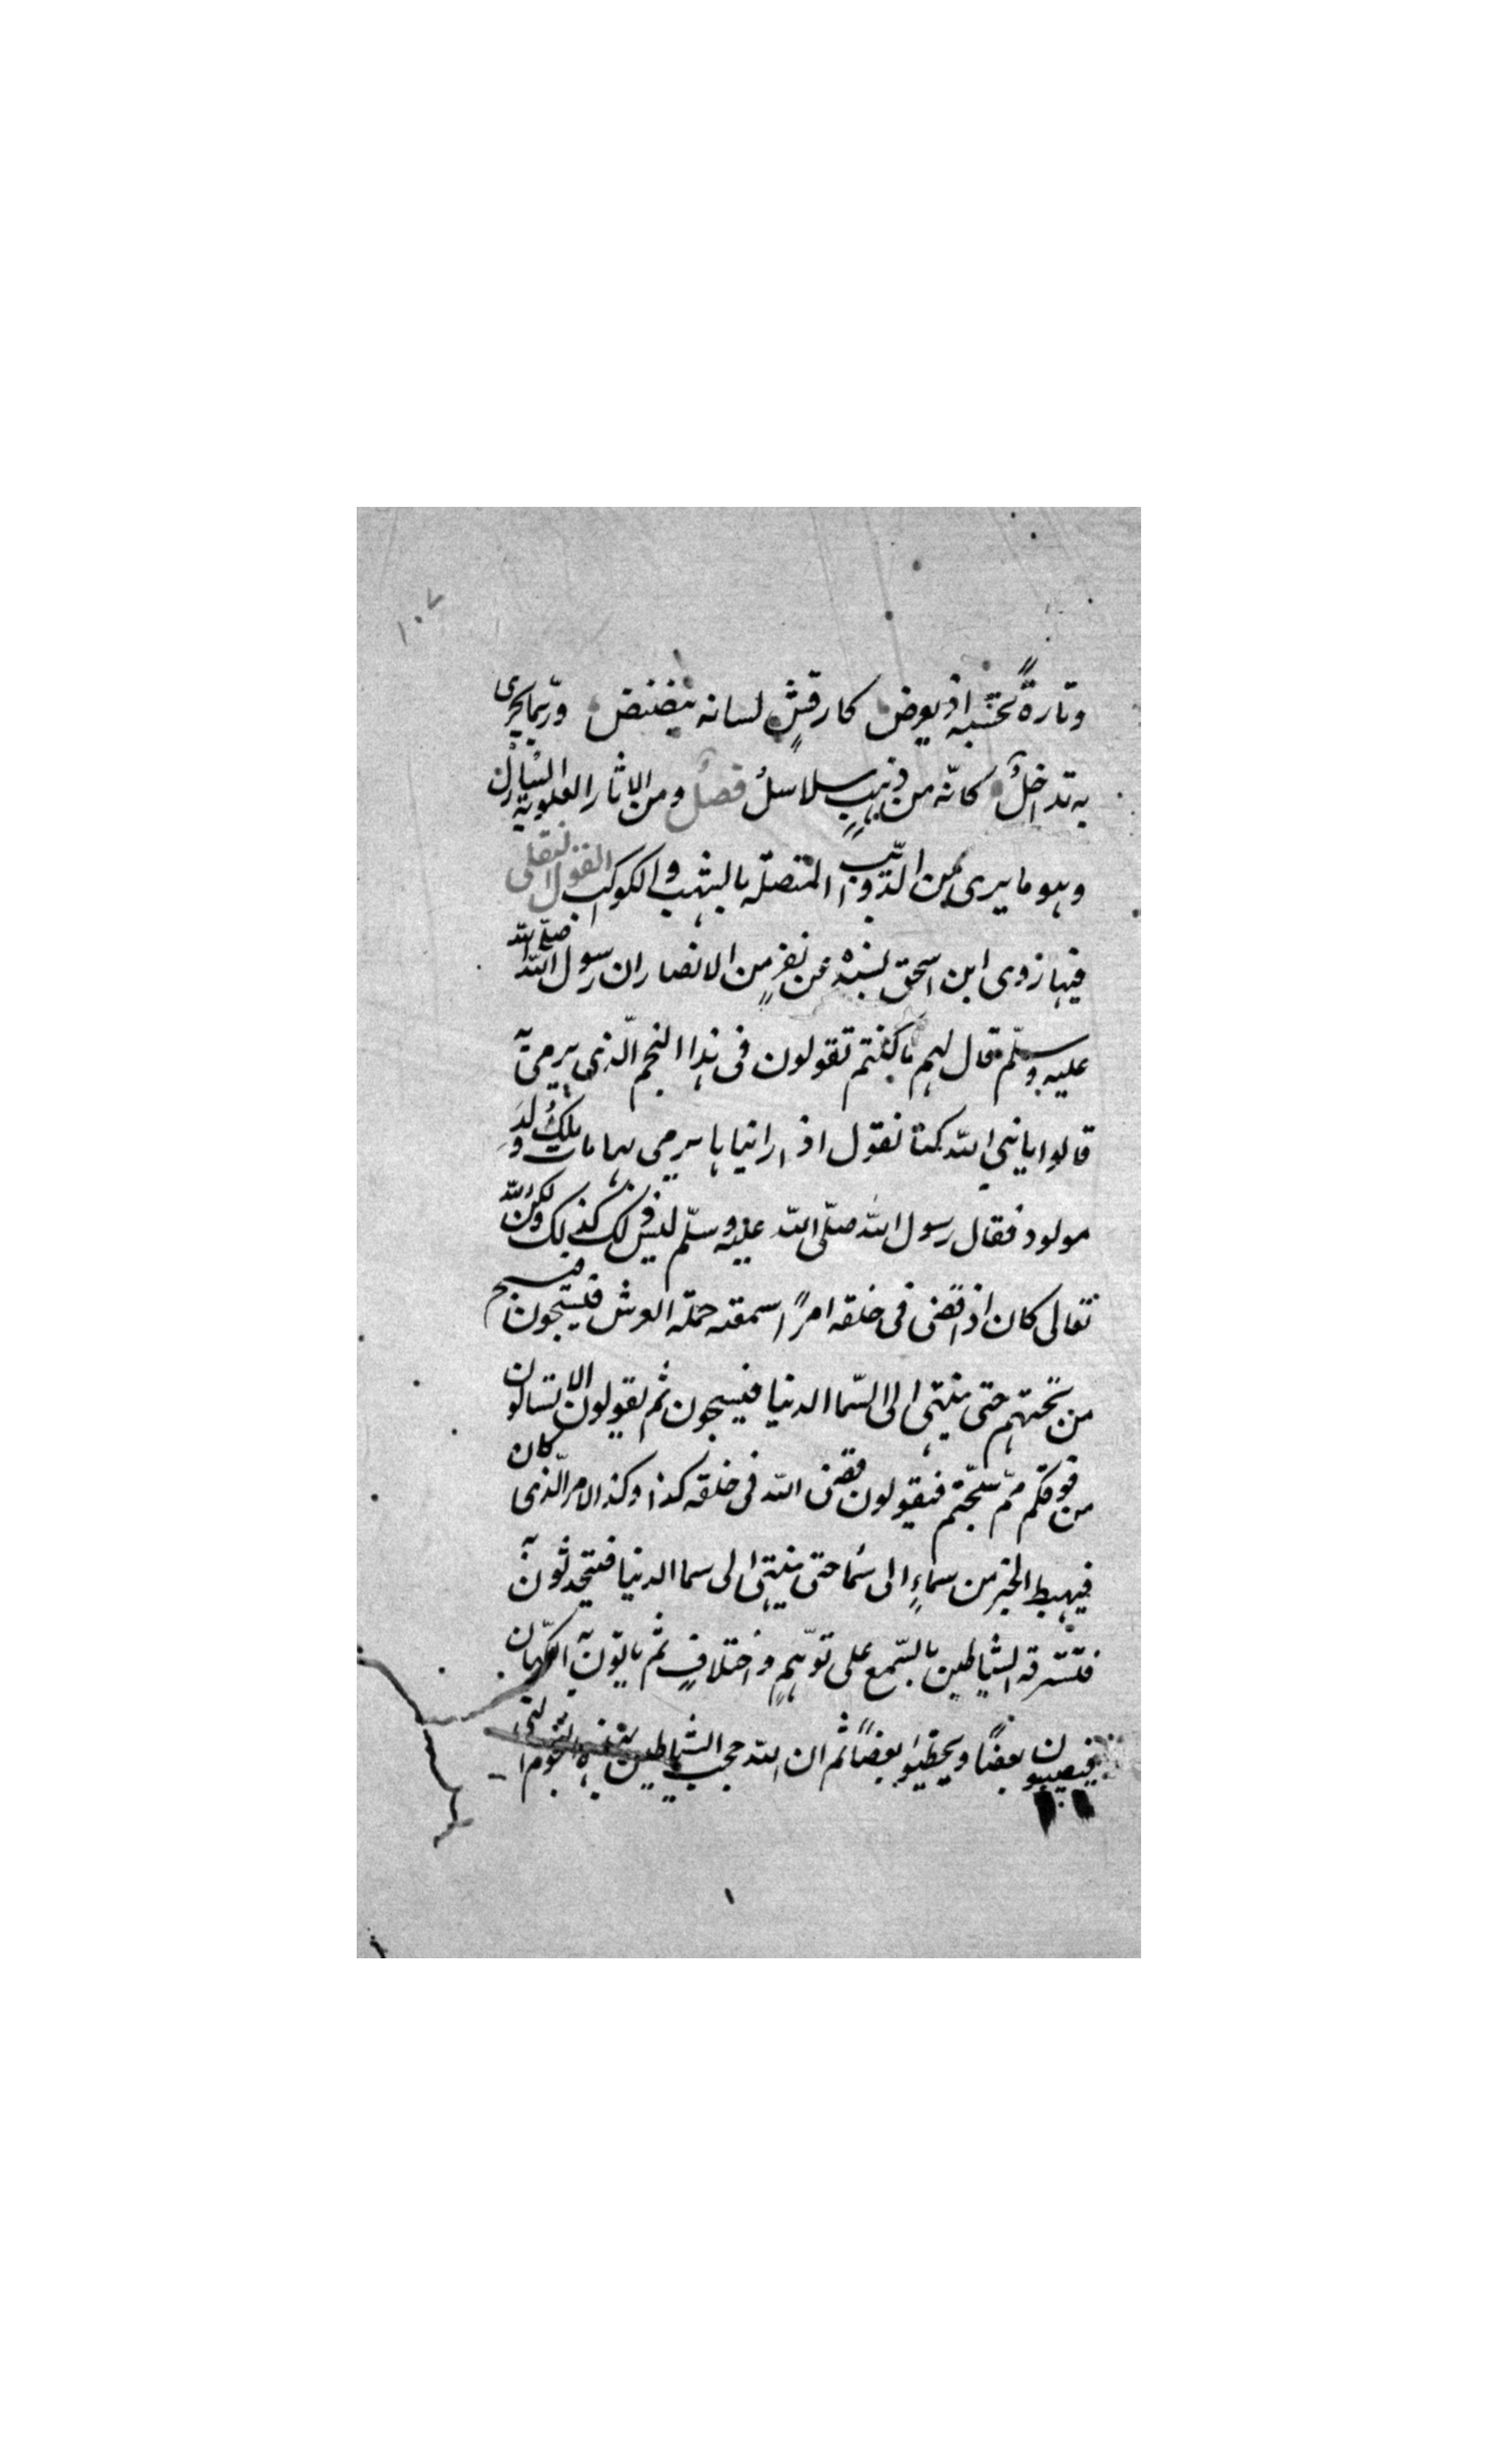 ١٠٧
وتارةً تحسبه اذ يومض كارقشٍ لسانه ينضنض وربّما يجرى
به تداخلٌ كانّه من ذهبٍ سلاسلُ فصلٌ ومن الاثار العلوية النيازك
وهو ما يرى من الذوايب المتصلّه بالشهب والكوكب القول النقلى
فيها روى ابن اسحق بسنده عن نفرٍ من الانصار ان رسول الله صلّى الله
عليه وسلّم قال لهم ما كنتم تقولون فى هذا النجم الّذى يرمى به
قالوا يا نبي الله كنا نقول اذ رانياها يرمى بها مات ملكٌ ولدَ
مولود فقال رسول الله صلّى الله عليه وسلّم ليس ذلك كذلك ولكن الله
تعالى كان اذا قضى فى خلقه امرًا سمعته حملة العرش فيسبحون فيسبح
من تحتهم حتى ينتهى الى السّما الدنيا فيسبحون ثم يقولون الا تسالون
من فوقكم ممّ سبّحتم فيقولون قضى الله فى خلقه كذا وكذا الامر الّذى كان
فيهبط الخبر من سماءٍ الى سما حتى ينتهى الى سما الدنيا فيتحدثون به
فتسترقه الشياطين بالسّمع على توهّمٍ واختلافٍ ثم ياتون به الكهّان
فيصيبون بعضًا ويخطيوا بعضًا ثم ان الله حجب الشياطين بهذه النجوم التى